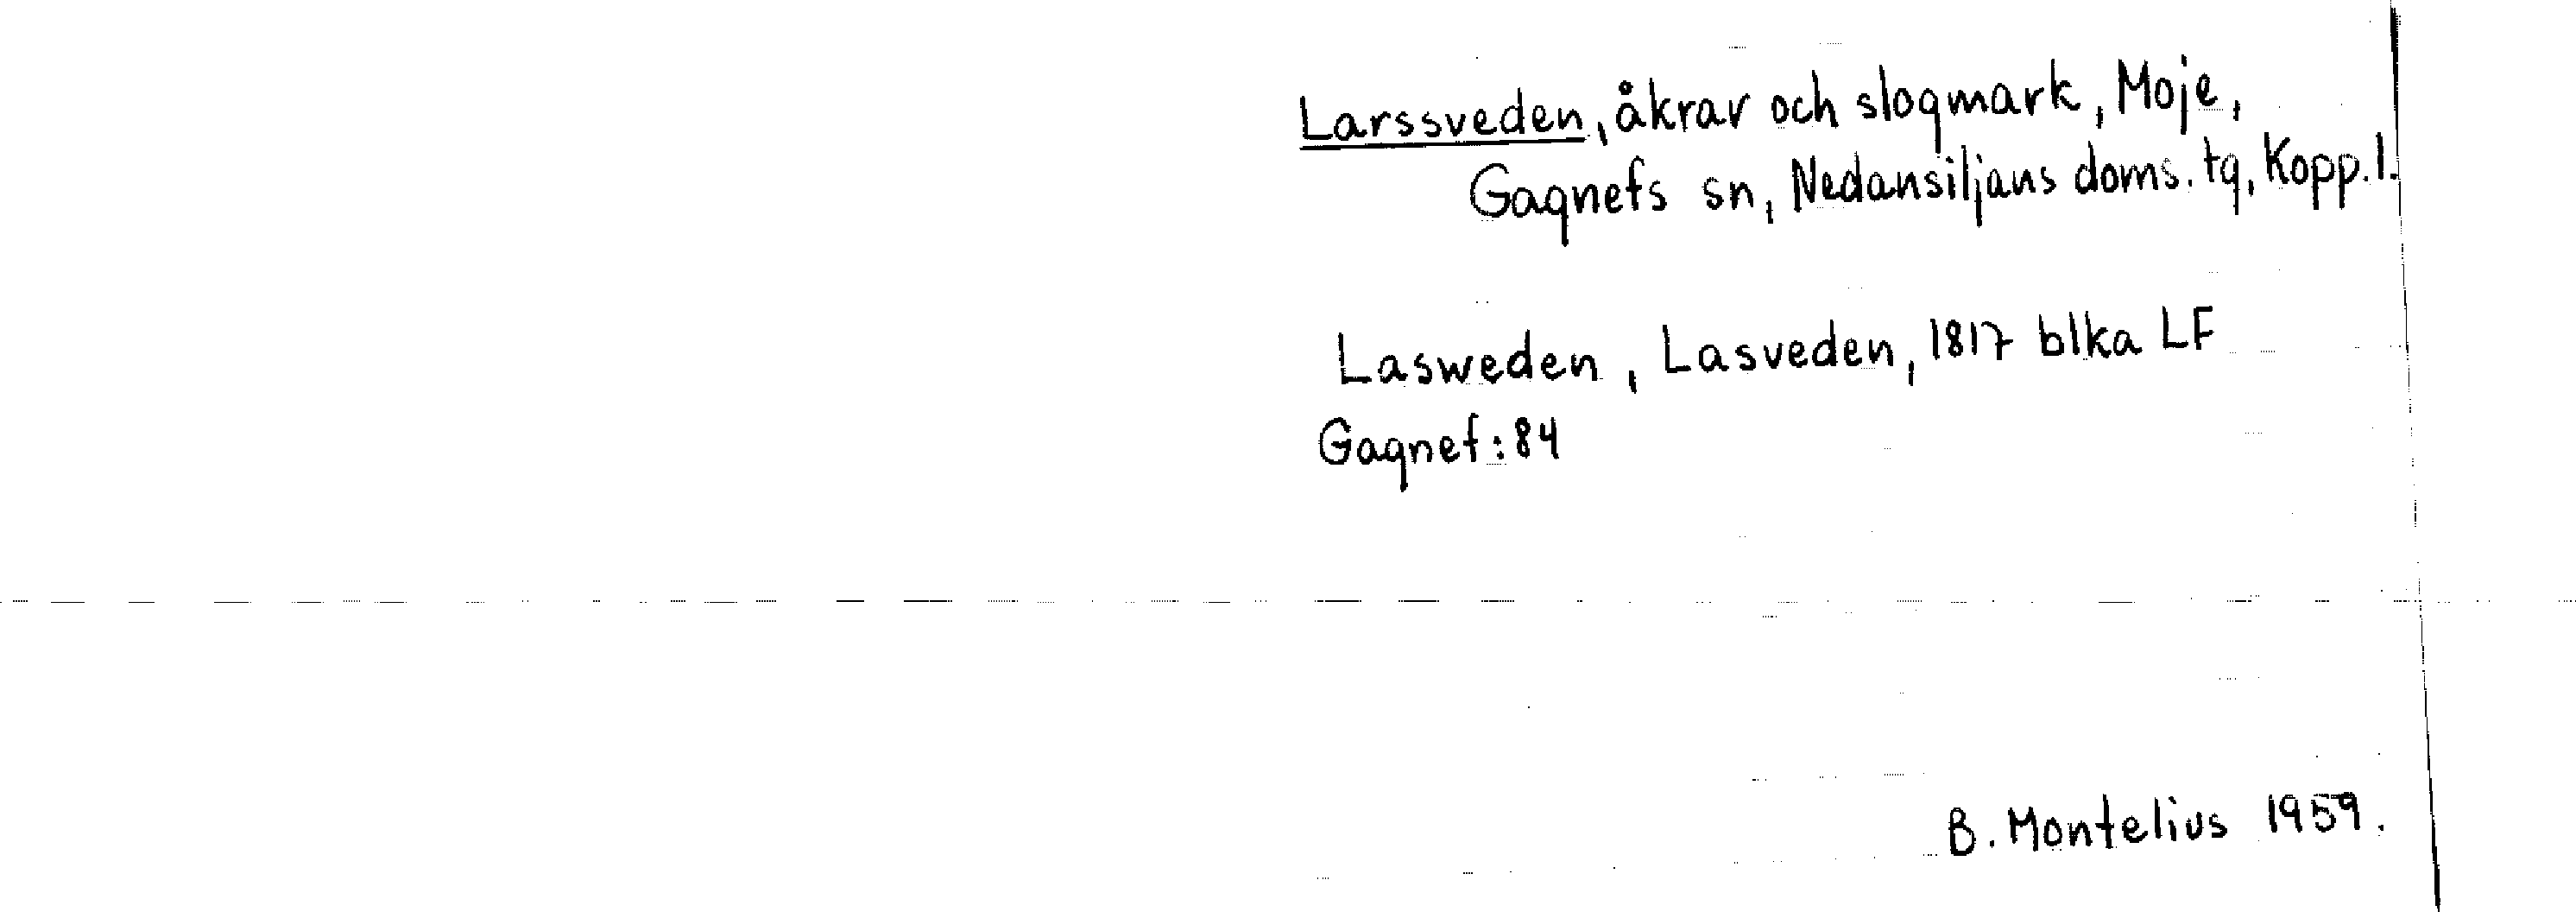 Larssveden, åkrar och slogmark, Moje,
Gagnefs sn, Nedansiljans doms. tg, Kopp. l.
Lasweden, Lasveden, 1817 blka LF
Gagnef: 84
B. Montelius 1959.